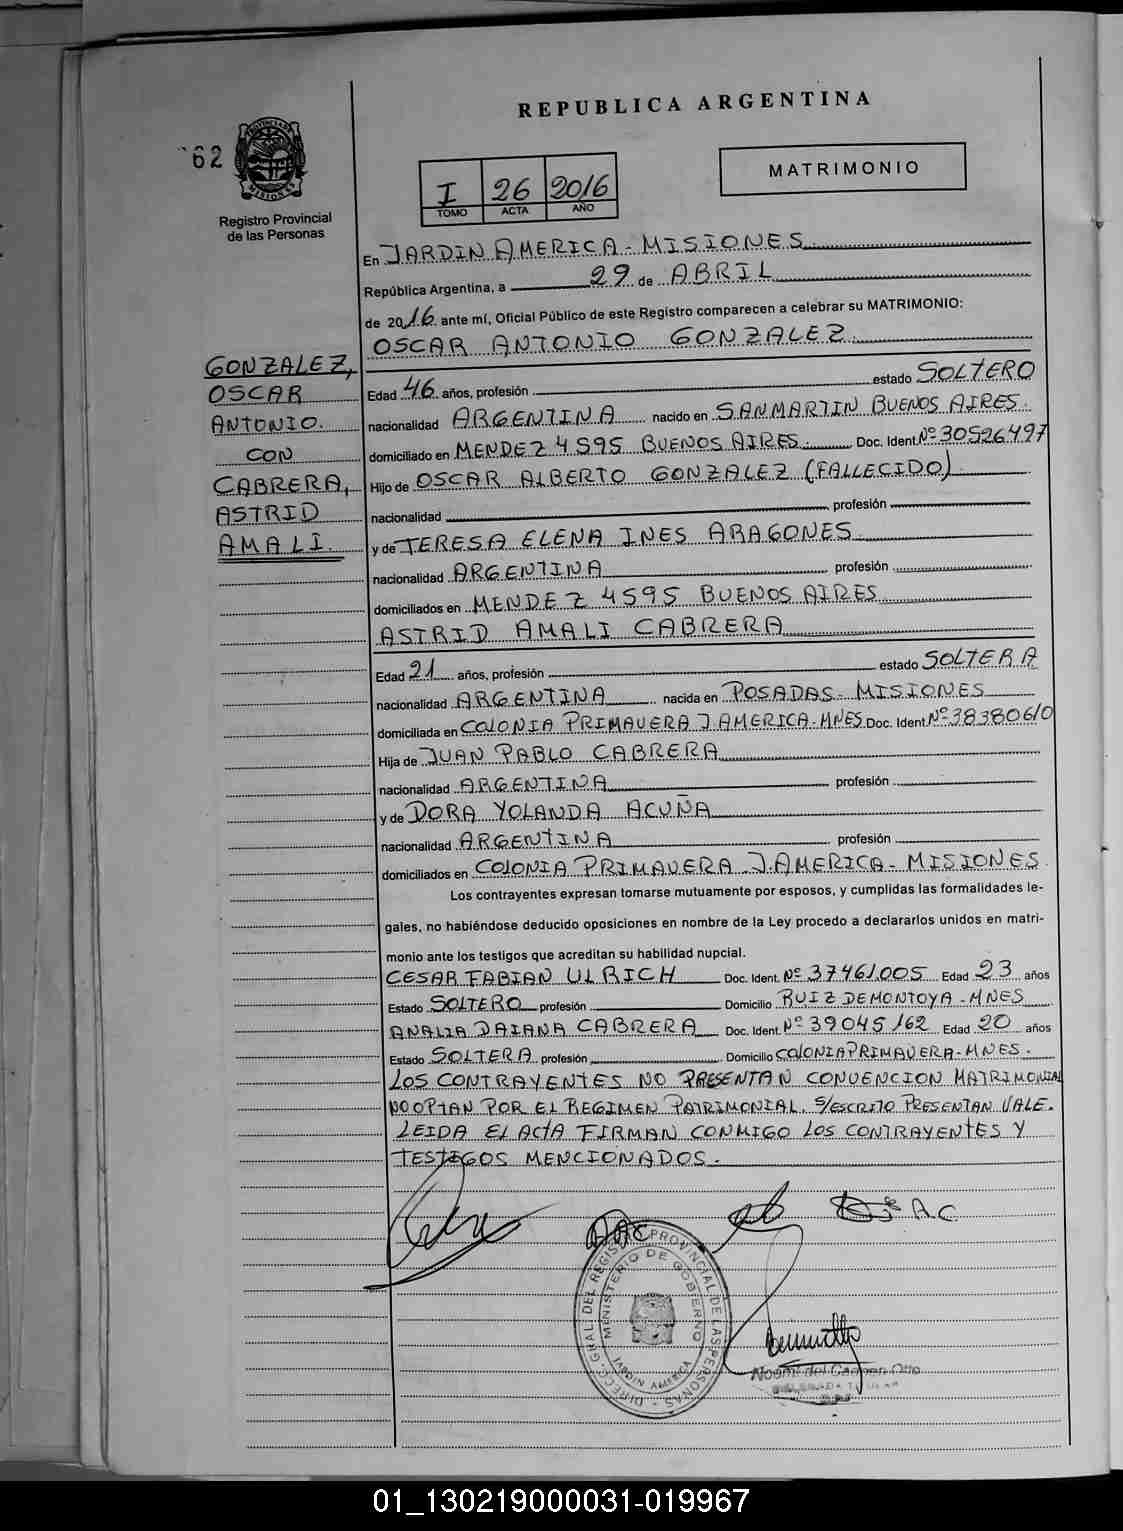 REPUBLICA ARGENTINA
62
MATRIMONIO
I 26 2016
TOMO ACTA AÑO
Registro Provincial
de las Personas
En JARDIN AMERICA - MISIONES
República Argentina, a 29 de ABRIL
de 2016 ante mí, Oficial Público de este Registro comparecen a celebrar su MATRIMONIO:
OSCAR ANTONIO GONZALEZ
GONZALEZ,
OSCAR
ANTONIO.
CON
CABRERA,
ASTRID
AMALI.
Edad 46 años, profesión estado SOLTERO
nacionalidad ARGENTINA nacido en SANMARTIN BUENOS AIRES.
domiciliado en MENDEZ 4595 BUENOS AIRES. Doc. Ident. Nº 30526497
Hijo de OSCAR ALBERTO GONZALEZ (FALLECIDO)
nacionalidad profesión
y de TERESA ELENA INES ARAGONES
nacionalidad ARGENTINA profesión
domiciliados en MENDEZ 4595 BUENOS AIRES
ASTRID AMALI CABRERA
Edad 21 años, profesión estado SOLTERA
nacionalidad ARGENTINA nacida en POSADAS - MISIONES
domiciliada en COLONIA PRIMAVERA J. AMERICA - MNES Doc. Ident. Nº 38380610
Hija de JUAN PABLO CABRERA
nacionalidad ARGENTINA profesión
y de DORA YOLANDA ACUÑA
nacionalidad ARGENTINA profesión
domiciliados en COLONIA PRIMAVERA J. AMERICA - MISIONES
Los contrayentes expresan tomarse mutuamente por esposos, y cumplidas las formalidades le-
gales, no habiéndose deducido oposiciones en nombre de la Ley procedo a declararlos unidos en matri-
monio ante los testigos que acreditan su habilidad nupcial.
CESAR FABIAN ULRICH Doc. Ident. Nº 37461005 Edad 23 años
Estado SOLTERO profesión Domicilio RUIZ DE MONTOYA - MNES
ANALIA DAIANA CABRERA Doc. Ident. Nº 39045162 Edad 20 años
Estado SOLTERA profesión Domicilio COLONIA PRIMAVERA - MNES.
LOS CONTRAYENTES NO PRESENTAN CONVENCION MATRIMONIAL
NO OPTAN POR EL REGIMEN PATRIMONIAL. S/ESCRITO PRESENTAN VALE.
LEIDA EL ACTA FIRMAN CONMIGO LOS CONTRAYENTES Y
TESTIGOS MENCIONADOS.
A.C
DIRECC. GRAL DEL REGISTRO PROVINCIAL DE LAS PERSONAS
MINISTERIO DE GOBIERNO
JARDIN AMERICA
Noemi del Carmen Otto
01_130219000031-019967